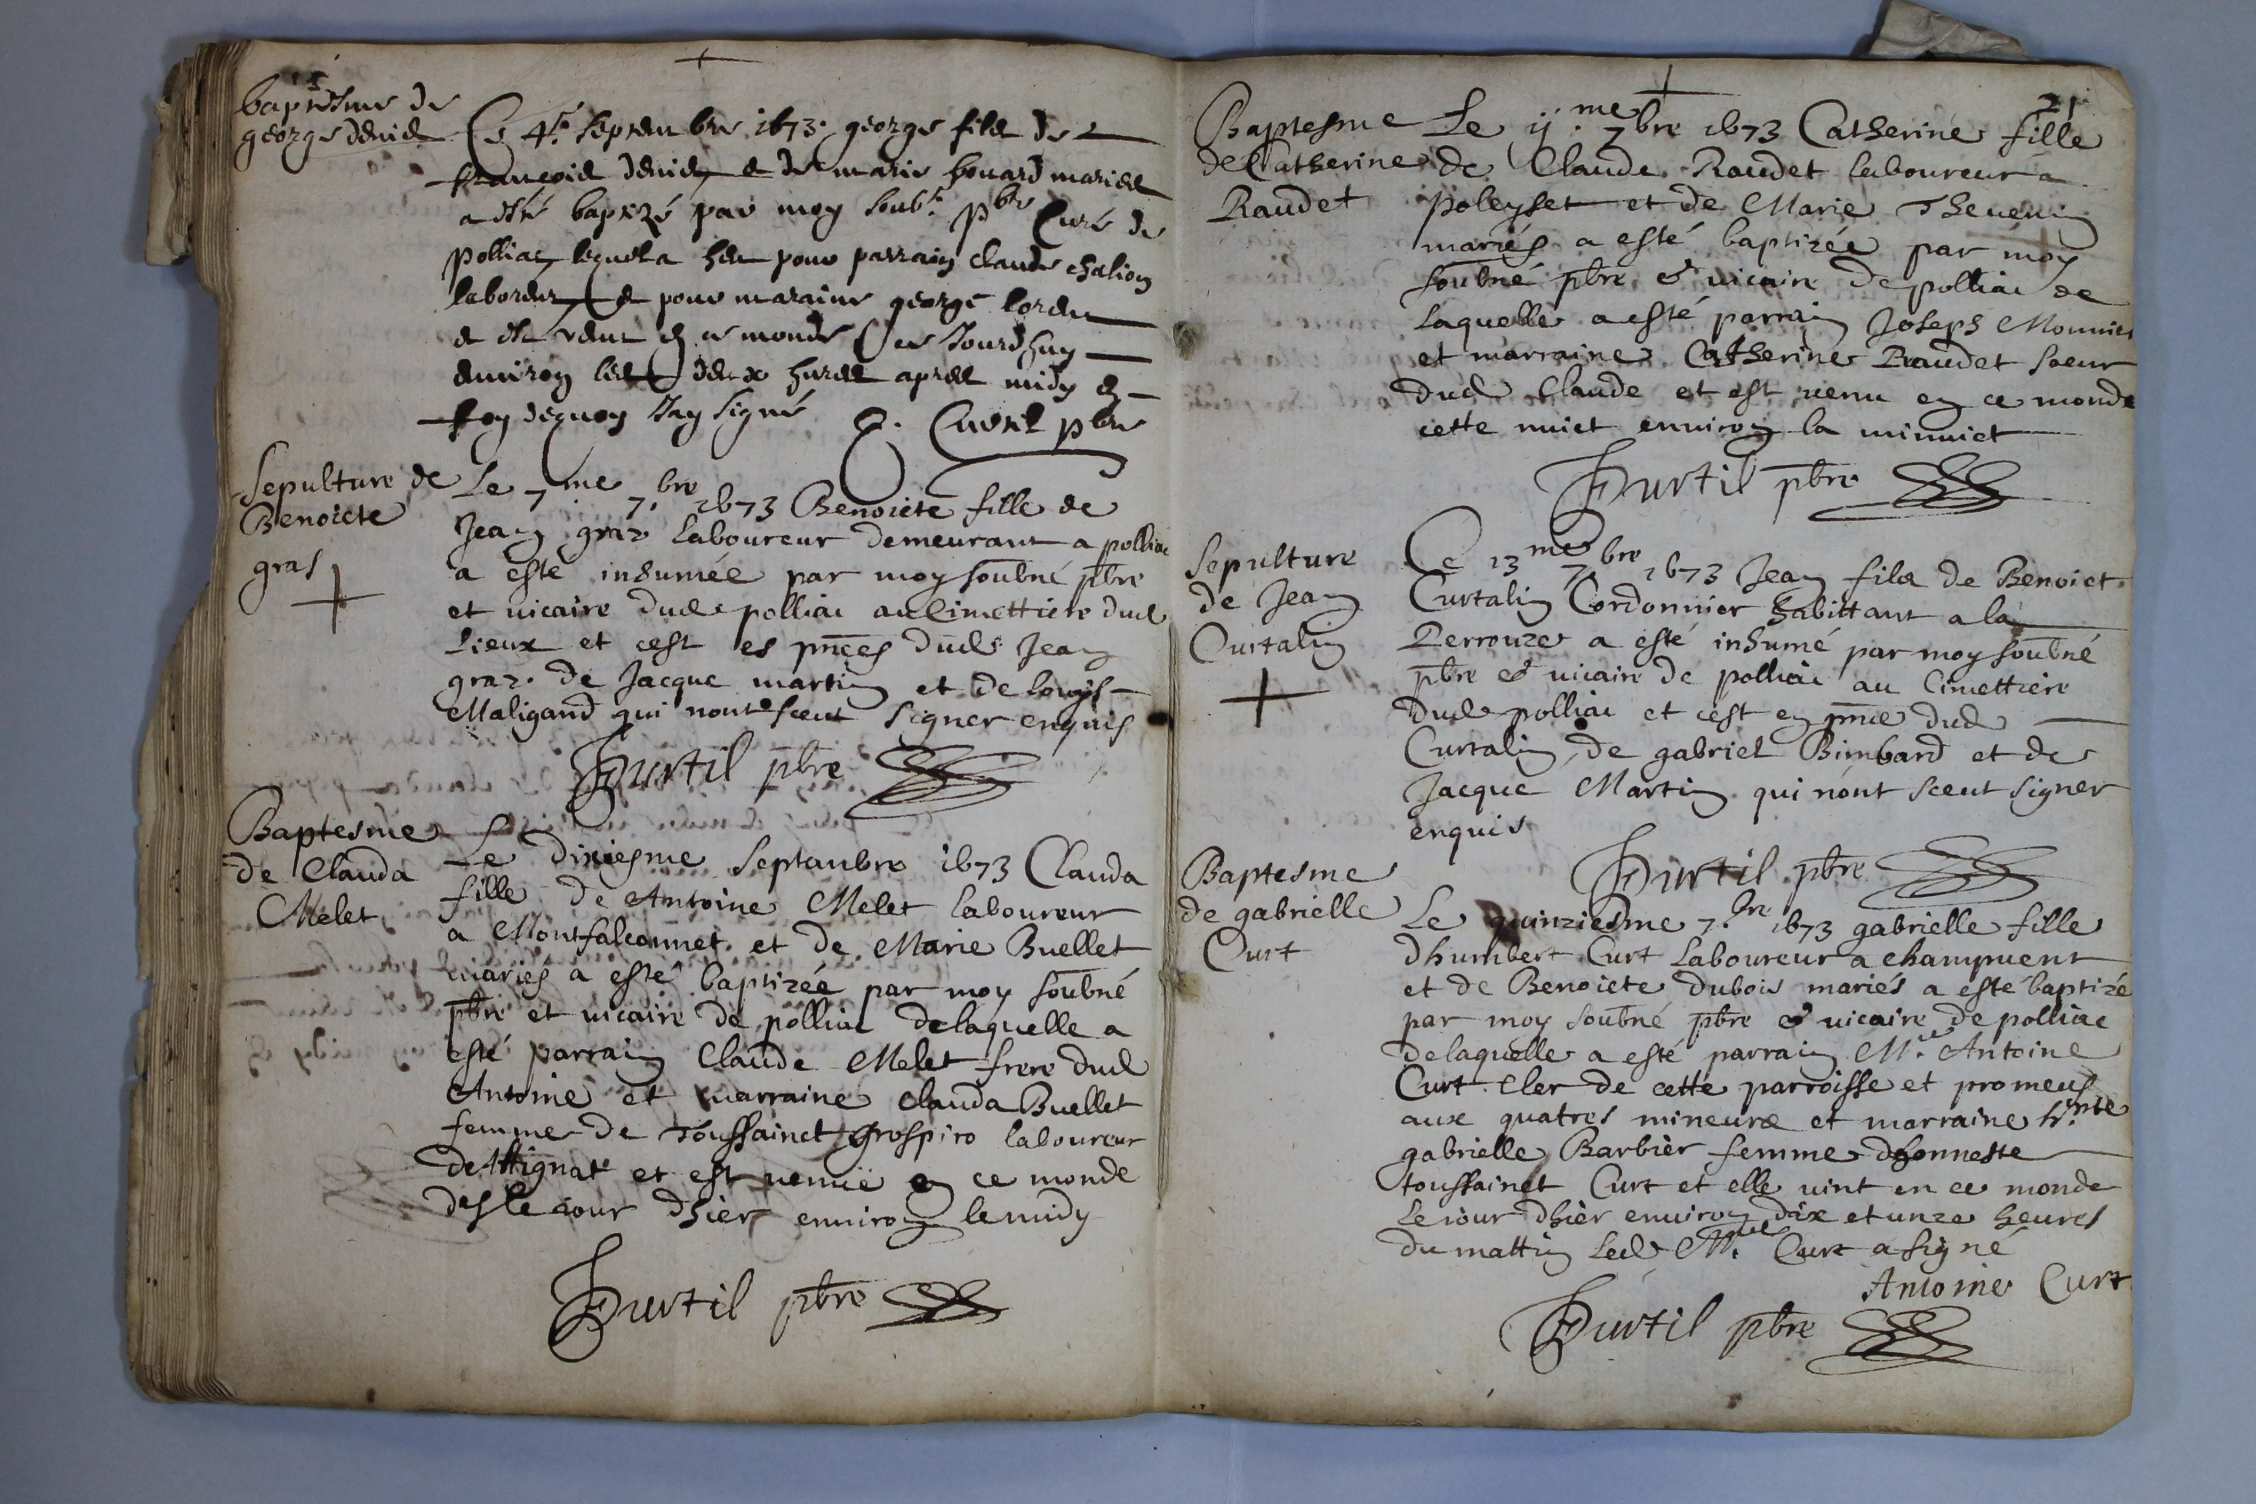 baptesme de
george denis
Ce 4e. septembre 1673. george fils de
françois denis et de marie bouard mariés
a esté baptizé par moy soubs. pbre Curé de
Polliac lequel a heu pour parrain claude chalion
laboreur et pour maraine george
et est venu en ce monde Ce Jourdhuy
environ les deux hures apres midy en
foy dequoy Jay signé C. Cuvril pbre
Sepulture de
Benoicte
gras
Le 7.me 7.bre 1673 Benoicte fille de
Jean graz laboureur demeurant a polliac
a este inhumée par moy soubné pbre
et vicaire dud polliac au Cimettiere dud
Lieux et cest es pnces dud Jean
graz. de Jacque martin et de louys
Maligand qui nont sceut signer enquis
Durtil pbre
Baptesme
de Clauda
Melet
Le dixiesme septanbre 1673 Clauda
fille de Antoine Melet laboureur
a Montfalconnet et de Marie Buellet
mariés a esté baptizée par moy soubné
pbre et vicaire de polliac delaquelle a
esté parrain Claude Melet frere dud
Antoine et marraine Clauda Buellet
femme de Toussainct Grospiro laboureur
de Attignat et est venue en ce monde
des le iour dhier environ le midy
Durtil pbre
21
Baptesme
de Catherine
Raudet
Le ij.me 7bre 1673 Catherine fille
de Claude Raudet laboureur a
Poleyset et de Marie Thevenin
mariés a esté baptizée par moy
soubné pbre et vicaire de polliac de
Laquelle a esté parrain Joseph Monnier
et marraine Catherine Raudet soeur
dud Claude et est venu en ce monde
cette nuict environ la minuict
Durtil pbre
Sepulture
de Jean
Curtalin
Ce 13me 7bre 1673 Jean fils de Benoict
Curtalin Cordonnier habittant a la
Perrouze a esté inhumé par moy soubné
pbre et vicaire de polliac au Cimettiere
dud polliac et cest en pnce dud
Curtalin, de gabriel Bimbard et de
Jacque Martin qui nont sceut signer
enquis
Durtil pbre
Baptesme
de gabrielle
Curt
Le quinziesme 7.bre 1673 gabrielle fille
dhumbert Curt Laboureur a champvent
et de Benoicte dubois mariés a esté baptizé
par moy soubné pbre et vicaire de polliac
delaquelle a esté parrain M.re Antoine
Curt Cler de cette parroisse et promeus
aux quatres mineurs et marraine h.nte
gabrielle Barbier femme dhonneste
toussainct Curt et elle vint en ce monde
Le iour dhier environ dix et unze heures
du mattin Led M.re Curt a signé
Antoine Curt
Durtil pbre